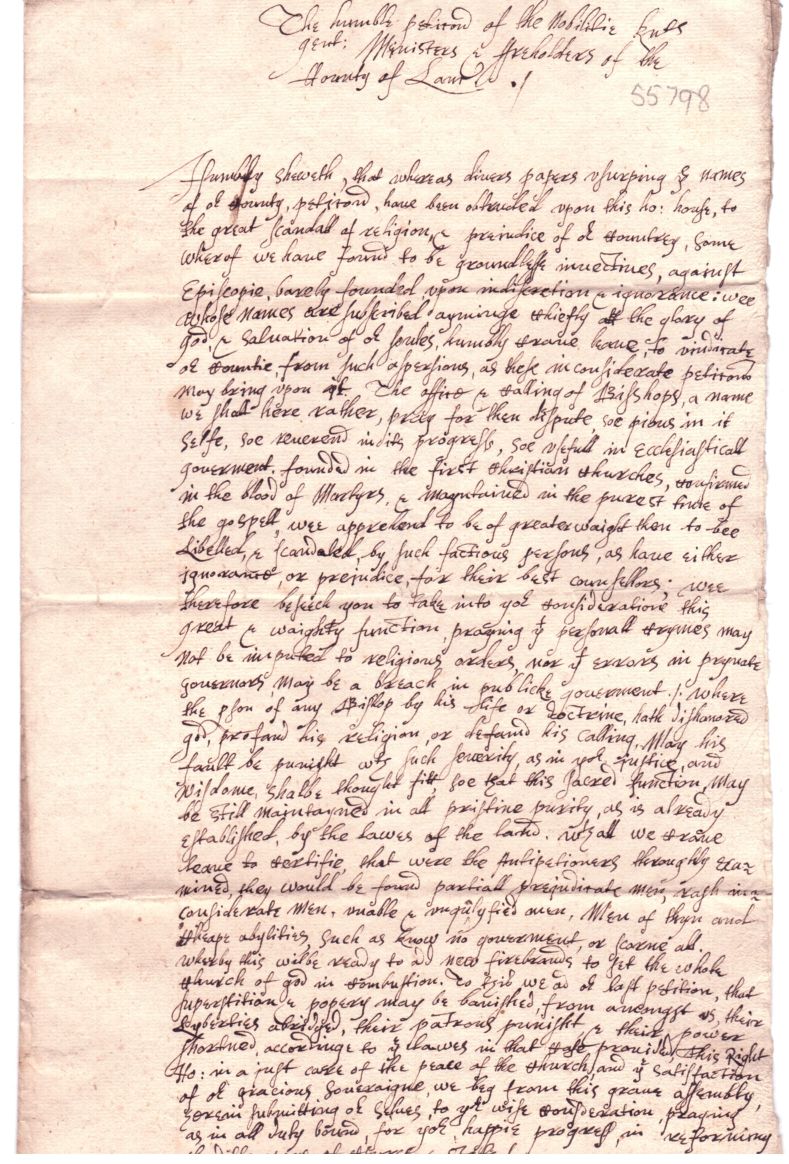 The humble petition of the Nobilitie knts
gent: Ministers & ffreholders of the
County of
55798
Humbly sheweth, that whereas divers papers usurping ye names
of or County, petitiond, have been obtruded upon this ho: house, to
the great scandall of religion, & prejudice of or Countrey, some
wherof we have found to be groundlesse invectives, against
Episcopie, barely founded upon indiscretion & ignorance: wee
whose names are subscribed ayminge chiefly att the glory of
god, & salvation of or soules, humbly crave leave, to vindicate
or Countie, from such aspersions, as these inconsiderate petitions
may bring upon it. The office & calling of Bisshops, a name
we shall here rather, pray for then dispute, soe pious in it
selfe, soe reverend in its progress, soe usefull in Ecclesiasticall
goverment, founded in the first Christian Churches, confirmed
in the blood of Martyrs, & mayntained in the purest time of
the gospell, wee apprehend to be of greater waight then to bee
Libelled, & scandaled, by such factious persons, as have either
ignorance, or prejudice, for their best counsellors; wee
therefore beseech you to take into yor consideratione this
great & waighty function, praying yt personall crymes may
not be imputed to religious orders, nor yt errors in pryvate
governors, may be a breach in publicke goverment ./. where
the pson of any Bishop by his life or doctrine, hath dishonored
god, profand his religion, or defamd his calling, May his
fault be punisht wth such severity, as in yor Justice, and
Wisdome, shalbe thought fitt, soe that this sacred function, May
be still maintayned in all pristine purity, as is already
established, by the lawes of the land. we crave
leave to certifie, that were the Antipetioners throughly exa=
mined, they would be found partiall prejudicate men, rash in=
considerate Men, unable & unqulyfied men, Men of thyn and
cheape abylities, such as know no goverment, or scorne all.
wherby this wilbe ready to ad new firebrands to set the whole
Church of god in combustion. To this we ad or last petition, that
superstition & popery may be banished, from amongst us, their
Lyberties abridged, their patrons punisht & their power
shortned, accordinge to ye lawes in that provided, This Right
Ho: in a just care of the peace of the Church, and ye satisfaction
of or gracious Soveraigne, we beg from this grave assembly,
submitting or selves, to yor wise consideration, praying
as in all duty bound, for yor happie progress, in reforming